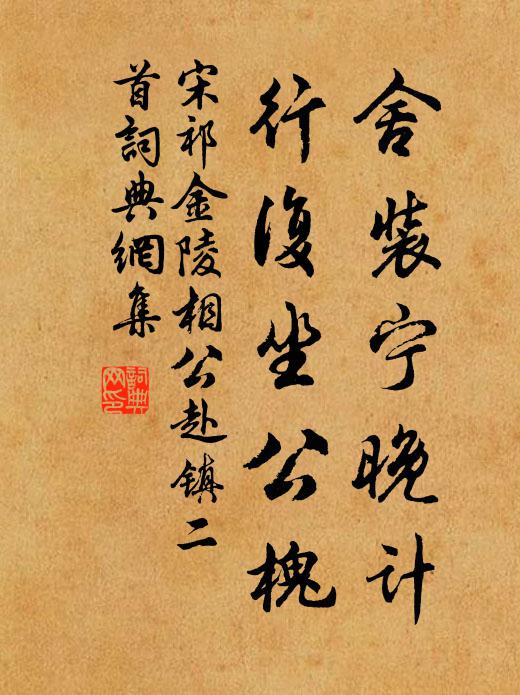 舍装宁晚计
行復坐公槐
宋祁金陵相公赴镇二
首詞典網集
詞典网印